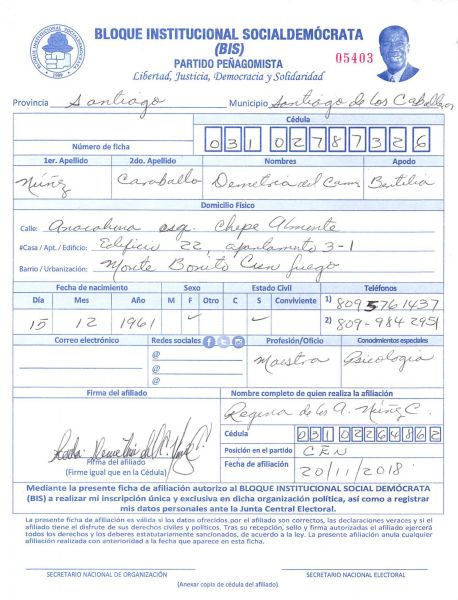 BLOQUE INSTITUCIONAL SOCIALDEMÓCRATA
(BIS)
PARTIDO PEÑAGOMISTA
05403
Libertad, Justicia, Democracia y Solidaridad
Provincia Santiago Municipio Santiago de los Caballeros
Cédula
Número de ficha 031 0278732 6
1er. Apellido 2do. Apellido Nombres Apodo
Núñez Caraballo Demetria del Carm Bertilia
Domicilio Físico
Calle: Anacahuna esq. Chepe Almonte
#Casa / Apt. / Edificio: Edificio 22, apartamento 3-1
Barrio / Urbanización: Monte Bonito Cien fuego
Fecha de nacimiento Sexo Estado Civil Teléfonos
Día Mes Año M F Otro C S Conviviente 1) 809 5761437
15 12 1961 ✓ ✓ 2) 809-984 2951
Correo electrónico Redes sociales Profesión/Oficio Conocimientos especiales
@ Maestra Psicologia
@
@
Firma del afiliado Nombre completo de quien realiza la afiliación
Regina de los A. Núñez C.
Cédula 031 0226486 2
Posición en el partido CEN
Firma del afiliado
(Firme igual que en la Cédula) Fecha de afiliación 20/11/2018
Mediante la presente ficha de afiliación autorizo al BLOQUE INSTITUCIONAL SOCIAL DEMÓCRATA
(BIS) a realizar mi inscripción única y exclusiva en dicha organización política, así como a registrar
mis datos personales ante la Junta Central Electoral.
La presente ficha de afiliación es válida si los datos ofrecidos por el afiliado son correctos, las declaraciones veraces y si el
afiliado tiene el disfrute de sus derechos civiles y políticos. Tras su recepción, sello y firma autorizadas el afiliado ejercerá
todos los derechos y los deberes estatutariamente sancionados, de acuerdo a la ley. La presente afiliación anula cualquier
afiliación realizada con anterioridad a la fecha que aparece en esta ficha.
SECRETARIO NACIONAL DE ORGANIZACIÓN SECRETARIO NACIONAL ELECTORAL
(Anexar copia de cédula del afiliado)